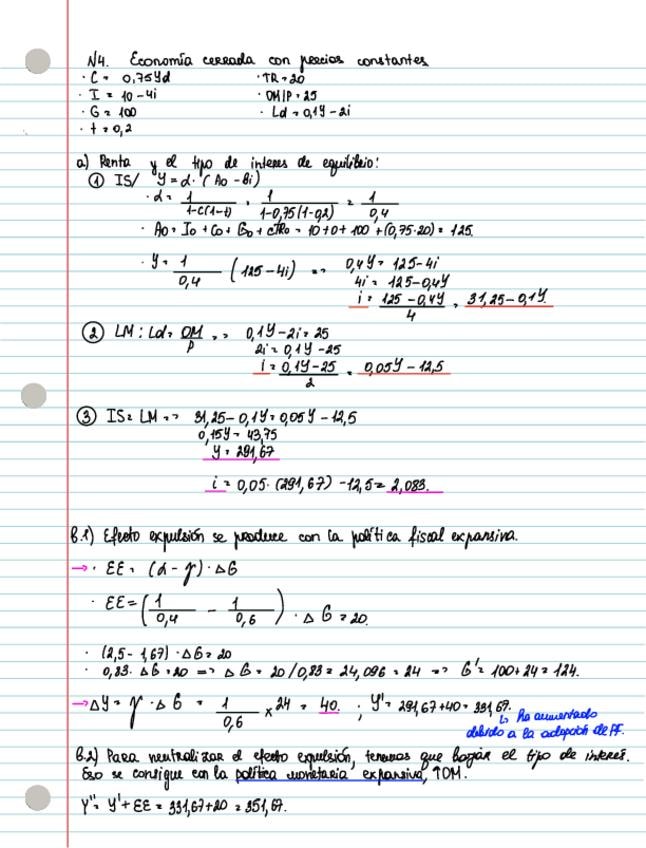 N4. Economía cerrada con precios constantes
· C = 0,75Yd · TR = 20
· I = 10 - 4i · OM/P = 25
· G = 100 · Ld = 0,1Y - 2i
· t = 0,2
a) Renta y el tipo de interes de equilibrio:
① IS/ Y = α · (A0 - bi)
· α = 1/(1-c(1-t)) = 1/(1-0,75(1-0,2)) = 1/0,4
· A0 = I0 + C0 + G0 + cTR0 = 10+0+100+(0,75·20) = 125.
· Y = 1/0,4 (125-4i) => 0,4Y = 125-4i
4i = 125-0,4Y
i = (125-0,4Y)/4 = 31,25-0,1Y
② LM: Ld = OM/P => 0,1Y-2i = 25
2i = 0,1Y-25
i = (0,1Y-25)/2 = 0,05Y-12,5
③ IS = LM => 31,25-0,1Y = 0,05Y-12,5
0,15Y = 43,75
Y = 291,67
i = 0,05·(291,67)-12,5 = 2,083.
b.1) Efecto expulsión se produce con la política fiscal expansiva.
→ · EE = (α - γ) · ΔG
· EE = (1/0,4 - 1/0,6) · ΔG = 20.
· (2,5-1,67) · ΔG = 20
· 0,83 · ΔG = 20 => ΔG = 20/0,83 = 24,096 = 24 => G' = 100+24 = 124.
→ ΔY = γ · ΔG = 1/0,6 × 24 = 40. ; Y' = 291,67+40 = 331,67.
↳ ha aumentado
debido a la adopción de PF.
b.2) Para neutralizar el efecto expulsión, tenemos que bajar el tipo de interés.
Eso se consigue con la política monetaria expansiva, ↑OM.
Y'' = Y' + EE = 331,67+20 = 351,67.